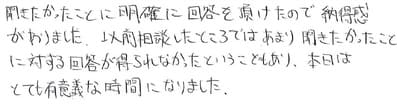 聞きたかったことに明確に回答を頂けたので納得感
がありました。以前相談したところではあまり聞きたかったこと
に対する回答が得られなかったということもあり、本日は
とても有意義な時間になりました。